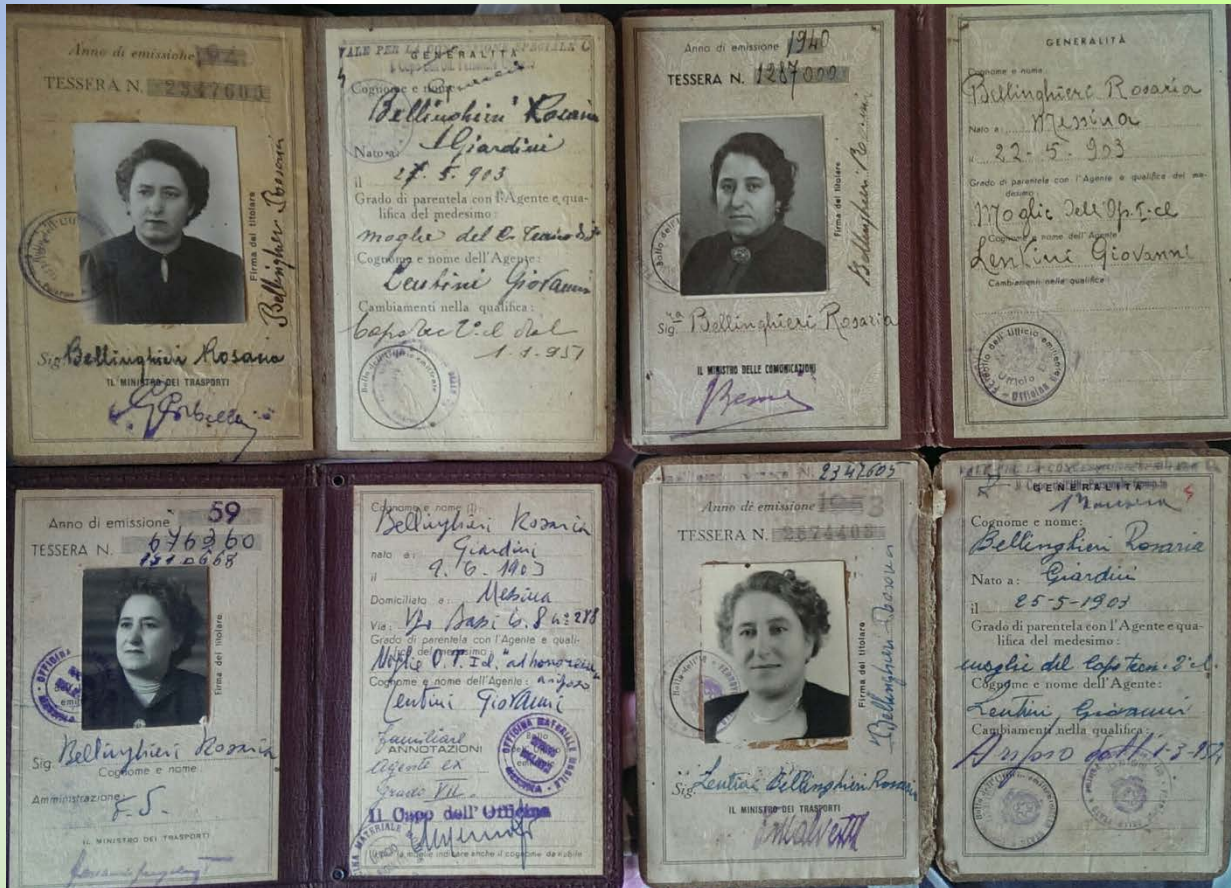 Anno di emissione
TESSERA N. 2347605
Firma del titolare
Bellinghieri Rosaria
Sig. Bellinghieri Rosaria
IL MINISTRO DEI TRASPORTI
VALE PER LA CONCESSIONE SPECIALE C
GENERALITÀ
Cognome e nome:
Bellinghieri Rosaria
Nato a: Giardini
il 27.5.903
Grado di parentela con l'Agente e qua-
lifica del medesimo:
moglie del C. Tecnico
Cognome e nome dell'Agente:
Lentini Giovanni
Cambiamenti nella qualifica:
1-1-951
Anno di emissione 1940
TESSERA N. 1287000
Firma del titolare
Bellinghieri Rosaria
Sig.ra Bellinghieri Rosaria
IL MINISTRO DELLE COMUNICAZIONI
GENERALITÀ
Cognome e nome
Bellinghieri Rosaria
Nato a: Messina
22-5-903
Grado di parentela con l'Agente e qualifica del me-
desimo:
Moglie dell'Op. I cl
Cognome e nome dell'Agente
Lentini Giovanni
Cambiamenti nella qualifica:
Anno di emissione 59
TESSERA N. 676260
Firma del titolare
Sig. Bellinghieri Rosaria
Cognome e nome
Amministrazione: F.S.
IL MINISTRO DEI TRASPORTI
Cognome e nome (1)
Bellinghieri Rosaria
nato a: Giardini
il 9.6.1903
Domiciliato a: Messina
Via:
Grado di parentela con l'Agente e quali-
fica del medesimo:
Moglie O.T. I cl. "ad honorem"
Cognome e nome dell'Agente: a riposo
Lentini Giovanni
Familiare
ANNOTAZIONI
Agente ex
Grado VII.
Il Capo dell'Officina
OFFICINA MATERIALE MOBILE
MESSINA
2347605
Anno di emissione 1953
TESSERA N. 2874403
Firma del titolare
Bellinghieri Rosaria
Sig. Lentini Bellinghieri Rosaria
IL MINISTRO DEI TRASPORTI
GENERALITÀ
Cognome e nome:
Bellinghieri Rosaria
Nato a: Giardini
il 25-5-1903
Grado di parentela con l'Agente e qua-
lifica del medesimo:
moglie del Capo tecn. 2ª cl.
Cognome e nome dell'Agente:
Lentini Giovanni
Cambiamenti nella qualifica:
A riposo dall'1-3-954